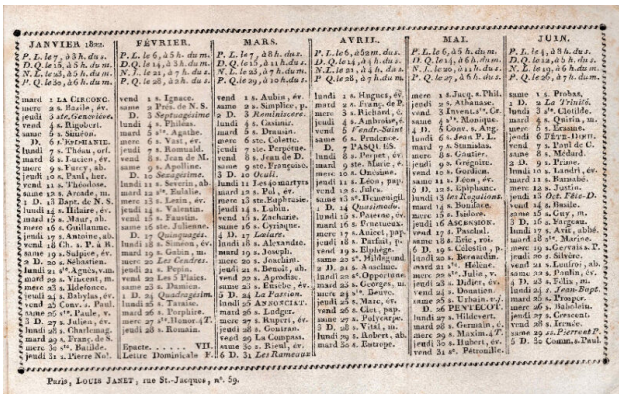 JANVIER 1822.
P. L. le 7, à 3 h. du s.
D. Q. le 15, à 5 h. du m.
N. L. le 23, à 5 h. du m.
P. Q. le 30, à 6 h. du m.
mard 1 LA CIRCONC.
merc 2 s. Basile, év.
jeudi 3 ste. Geneviève.
vend 4 s. Rigobert.
same 5 s. Siméon.
D. 6 EPIPHANIE.
lundi 7 s. Théau, orf.
mard 8 s. Lucien, év.
merc 9 s. Furcy, ab.
jeudi 10 s. Paul, her.
vend 11 s. Théodose.
same 12 s. Arcade, m.
1 D. 13 Bapt. de N. S.
lundi 14 s. Hilaire, év.
mard 15 s. Maur, ab.
mer 16 s. Guillaume.
jeudi 17 s. Antoine, ab.
vend 18 Ch. s. P. à R.
same 19 s. Sulpice, év.
2 D. 20 s. Sébastien.
lundi 21 ste. Agnès, v.m.
mard 22 s. Vincent, m.
merc 23 s. Ildefonce.
jeudi 24 s. Babylas, év.
vend 25 Conv. s. Paul.
same 26 ste. Paule, v.
3 D. 27 s. Julien, év.
lundi 28 s. Charlemag.
mard 29 s. Franç. de S.
merc 30 ste. Batilde.
jeudi 31 s. Pierre No.
FÉVRIER.
P. L. le 6, à 5 h. du m.
D. Q. le 14, à 3 h. du m.
N. L. le 21, à 7 h. du s.
P. Q. le 28, à 2 h. du s.
vend 1 s. Ignace.
same 2 Prés. de N. S.
D. 3 Septuagésime
lundi 4 s. Philéas.
mard 5 ste. Agathe.
merc 6 s. Vast, év.
jeudi 7 s. Romuald.
vend 8 s. Jean de M.
same 9 s. Apolline.
D. 10 Sexagésime.
lundi 11 s. Severin, ab
mard 12 ste. Eulalie
merc 13 s. Lezin, év.
jeudi 14 s. Valentin.
vend 15 s. Faustin.
same 16 ste. Julienne.
D. 17 Quinquagés.
lundi 18 s. Siméon, év.
mard 19 s. Gabin, m.
merc 20 Les Cendres.
jeudi 21 s. Pepin.
vend 22 Les 5 Plaies.
same 23 s. Damien.
1 D. 24 Quadragésim.
lundi 25 s. Taraise.
mard 26 s. Porphire.
merc 27 ste. Honor. 4 T.
jeudi 28 s. Romain.
Epacte..... VII.
Lettre Dominicale F.
MARS.
P. L. le 7, à 8 h. du s.
D. Q. le 15, à 11 h. du s.
N. L. le 23, à 7 h. du m.
P. Q. le 29, à 10 h. du s.
vend 1 s. Aubin, év.
same 2 s. Simplice, p.
2 D. 3 Reminiscere.
lundi 4 s. Casimir.
mard 5 s. Drausin.
merc 6 ste. Colette.
jeudi 7 ste. Perpétue.
vend 8 s. Jean de D.
same 9 ste. Françoise.
3 D. 10 Oculi.
lundi 11 Les 40 martyrs
mard 12 s. Pol, év.
merc 13 ste. Euphrasie.
jeudi 14 s. Lubin.
vend 15 s. Zacharie.
same 16 s. Cyriaque.
4 D. 17 Lætare.
lundi 18 s. Alexandre.
mard 19 s. Joseph.
merc 20 s. Joachim.
jeudi 21 s. Benoît, ab.
vend 22 s. Aprodise.
same 23 s. Eusèbe, év.
5 D. 24 La Passion.
lundi 25 ANNONCIAT.
mard 26 s. Ludger.
merc 27 s. Rupert, év.
jeudi 28 s. Gontran.
vend 29 La Compass.
same 30 s. Rieul, év.
6 D. 31 Les Rameaux
AVRIL.
P. L. le 6, à 52 m. du s.
D. Q. le 14, à 4 h. du s.
N. L. le 21, à 4 h. du s.
P. Q. le 28, à 7 h. du m.
lundi 1 s. Hugues, év.
mard 2 s. Franç. de P.
merc 3 s. Richard, é.
jeudi 4 s. Ambroise, é.
vend 5 Vendr.-Saint
same 6 s. Prudence.
D. 7 PASQUES.
lundi 8 s. Perpet, év
mard 9 ste. Marie, é.
merc 10 s. Onésime.
jeudi 11 s. Léon, pap.
vend 12 s. Jules.
same 13 s. Hermenigil.
1 D. 14 Quasimodo.
lundi 15 s. Paterne, év.
mard 16 s. Fructueux.
merc 17 s. Anicet, pap.
jeudi 18 s. Parfait, p.
vend 19 s. Elphège.
same 20 s. Hildegond
2 D. 21 s. Anselme.
lundi 22 ste Opportune
mard 23 s. Georges, m.
merc 24 ste. Beuve.
jeudi 25 s. Marc, év.
vend 26 s. Clet, pap.
same 27 s. Polycarpe.
3 D. 28 s. Vital, m.
lundi 29 s. Robert, ab.
mard 30 s. Eutrope.
MAI.
P. L. le 6, à 5 h. du m.
D. Q. le 14, à 6 h. du m.
N. L. le 20, à 11 h. du s.
P. Q. le 27, à 6 h. du s.
merc 1 s. Jacq. s. Phil.
jeudi 2 s. Athanase.
vend 3 Inven. ste. Cr.
same 4 ste. Monique.
4 D. 5 Conv. s. Aug.
lundi 6 s. Jean P. L.
mard 7 s. Stanislas.
merc 8 s. Gautier.
jeudi 9 s. Grégoire.
vend 10 s. Gordien.
same 11 s. Fréon, év.
5 D. 12 s. Epiphane.
lundi 13 Les Rogations
mard 14 s. Boniface.
merc 15 s. Isidore.
jeudi 16 ASCENSION.
vend 17 s. Paschal.
same 18 s. Eric, roi.
6 D. 19 s. Célestin, p.
lundi 20 s. Bernardin.
mard 21 ste. Hélène.
merc 22 ste. Julie, v.
jeudi 23 s. Didier, év.
vend 24 s. Donatien.
same 25 s. Urbain. v.j.
D. 26 PENTECOT.
lundi 27 s. Hildevert.
mard 28 s. Germain, é.
merc 29 s. Maxim. 4 T.
jeudi 30 s. Hubert, év.
vend 31 ste. Pétronille.
JUIN.
P. L. le 4, à 8 h. du s.
D. Q. le 12, à 5 h. du s.
N. L. le 19, à 6 h. du m.
P. Q. le 26, à 7 h. du m.
same 1 s. Probas.
1 D. 2 La Trinité.
lundi 3 ste. Clotilde.
mard 4 s. Quirin, m.
merc 5 s. Erasme.
jeudi 6 FÊTE-DIEU.
vend 7 s. Paul de C.
same 8 s. Médard.
2 D. 9 s. Prime.
lundi 10 s. Landri, év.
mard 11 s. Barnabé.
merc 12 s. Justin.
jeudi 13 Oct. Fête-D.
vend 14 s. Basile.
same 15 s. Guy, m.
3 D. 16 s. Fargeau.
lundi 17 s. Avit, abbé.
mard 18 ste. Marine.
merc 19 s. Gervais s. P.
jeudi 20 s. Silvère.
vend 21 s. Leufroi, ab.
same 22 s. Paulin, év.
4 D. 23 s. Félix, m.
lundi 24 s. Jean-Bapt.
mard 25 s. Prosper.
merc 26 s. Babolein.
jeudi 27 s. Crescent.
vend 28 s. Irénée.
same 29 ss. Pierre et P.
5 D. 30 Comm. s. Paul.
Paris, LOUIS JANET, rue St.-Jacques, n°. 59.